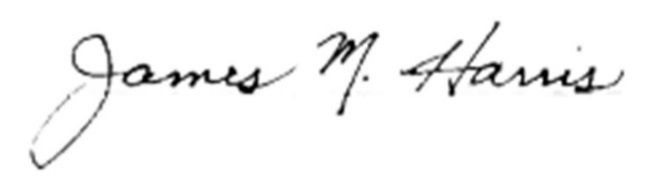 James M. Harris